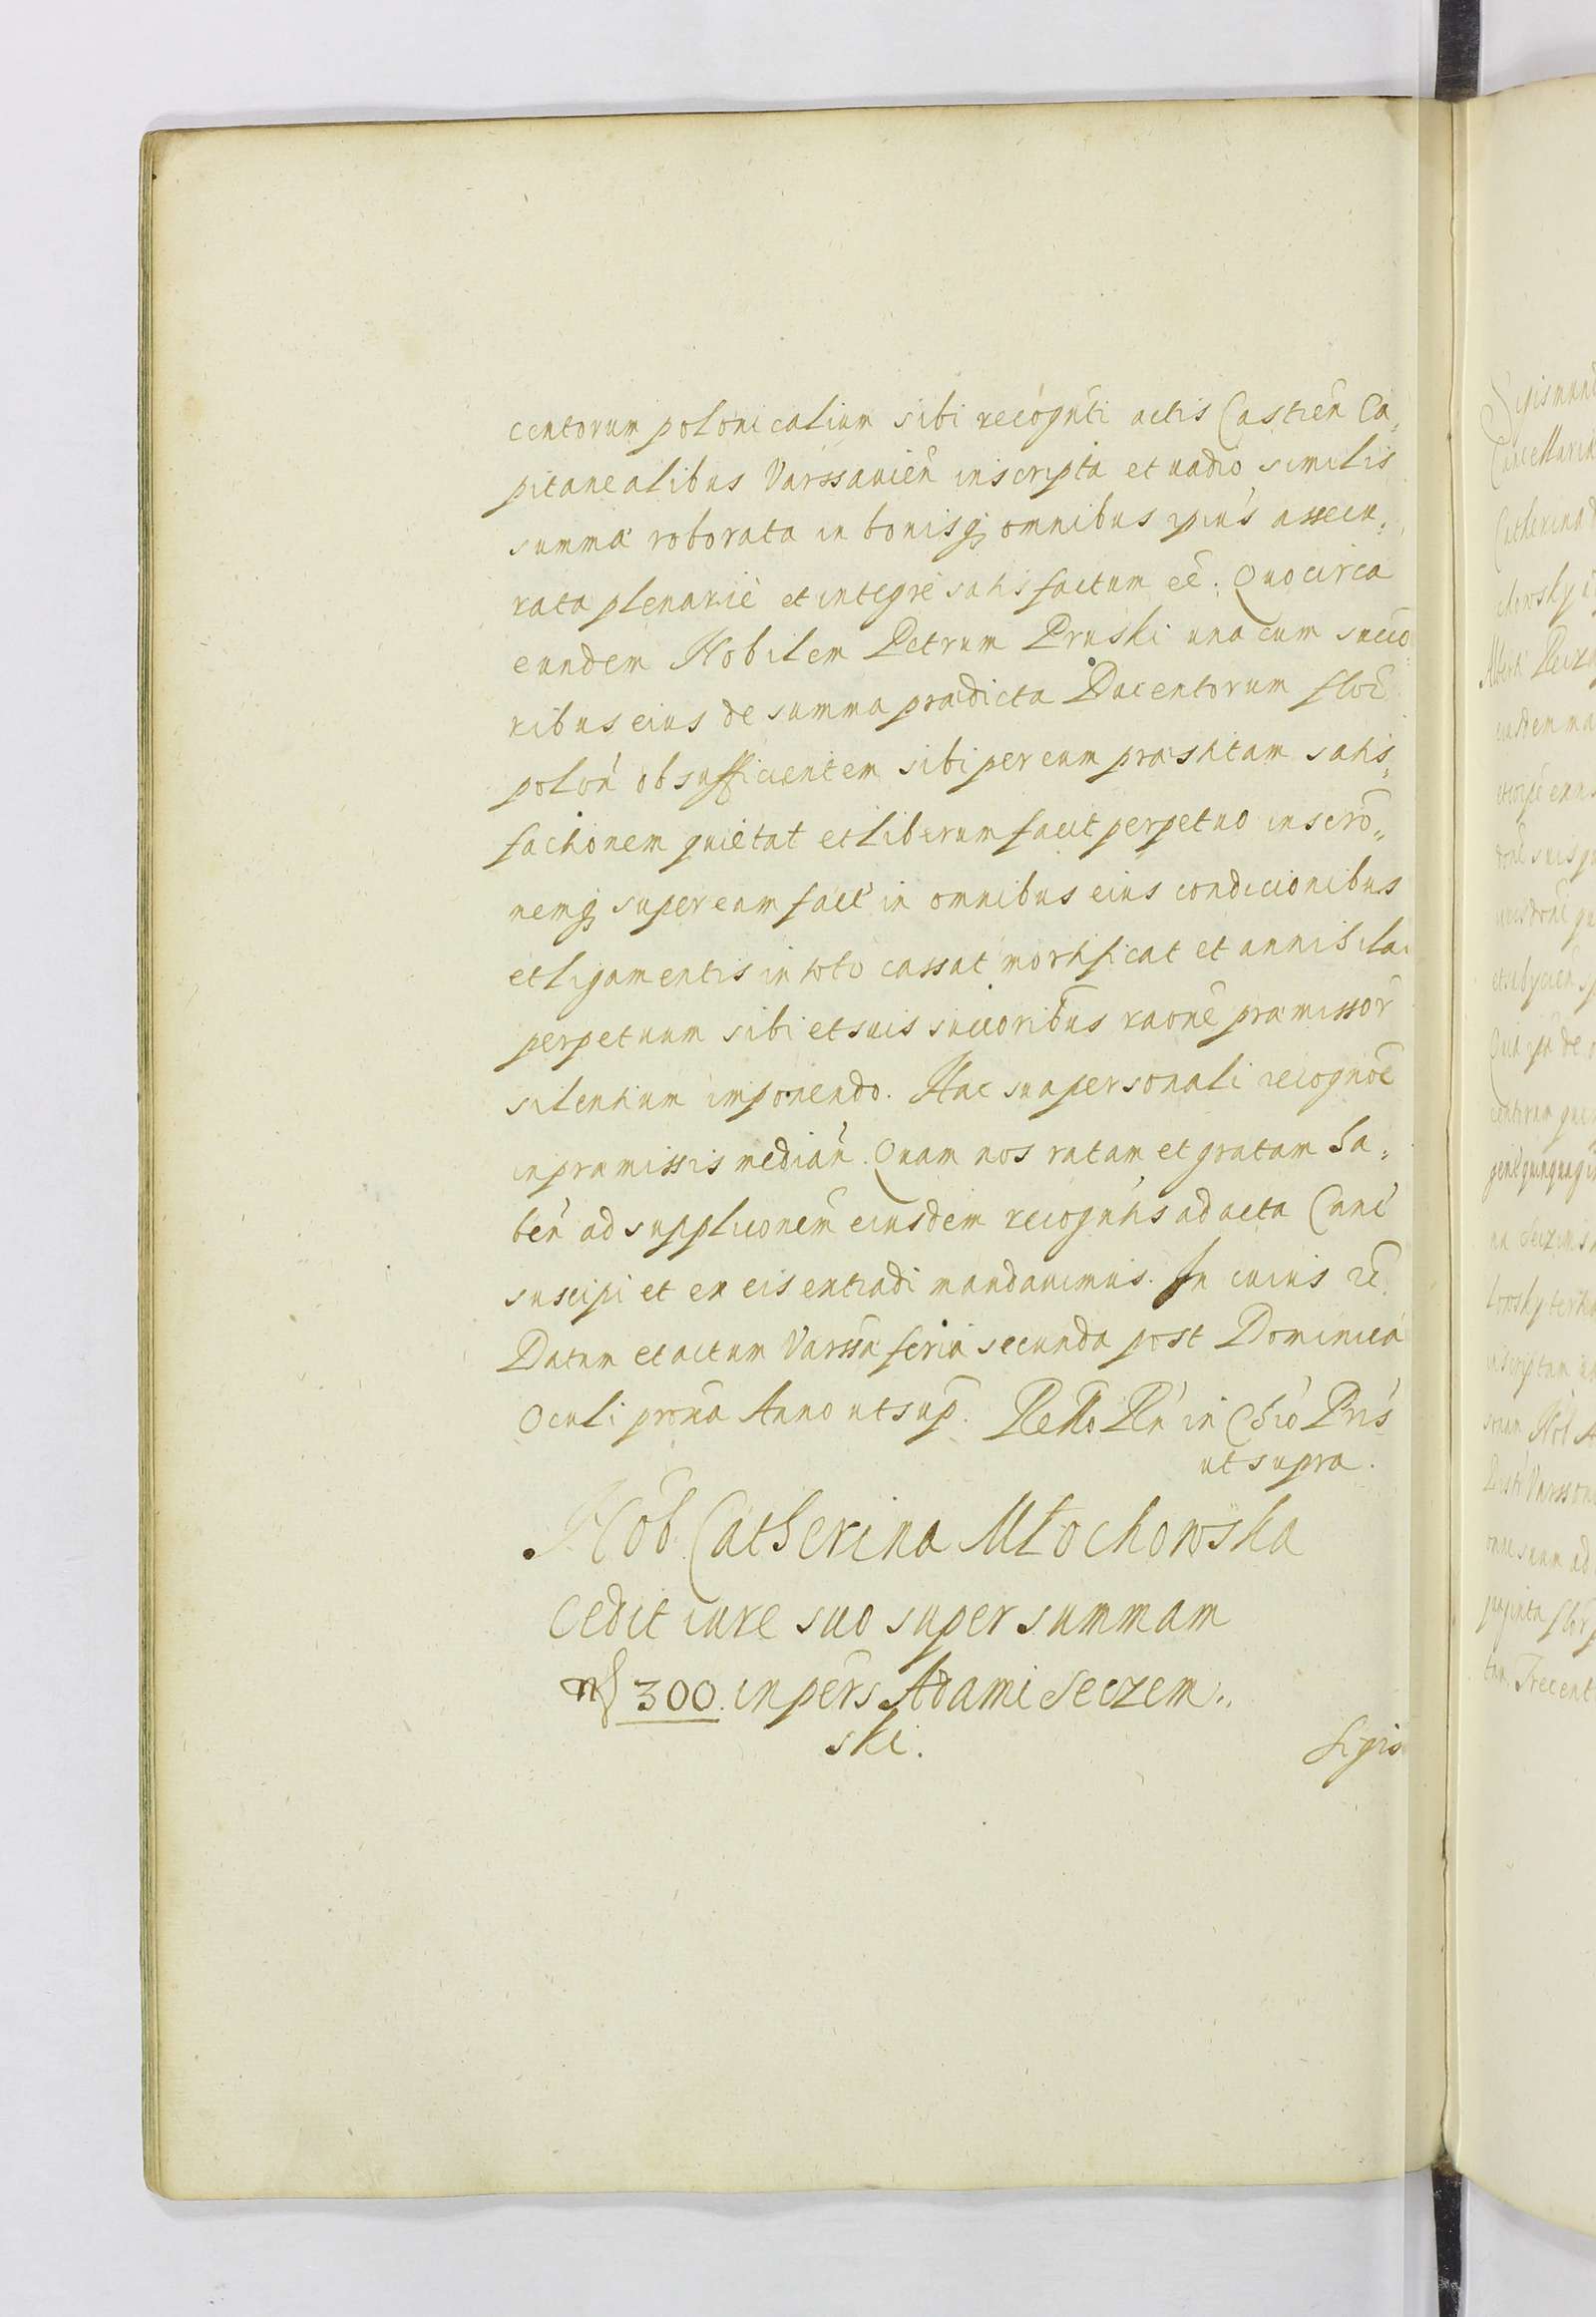 centorum polonicalium sibi recognti actis Castreñ Ca„
pitanealibus Varssavieñ inscripta et vadio similis
summa roborata in bonisq; omnibus ipius assecu„
rata plenarie et integre satisfactum eē. Quocirca
eundem Nobilem Petrum Pruski una cum succo„
ribus eius de summa prædicta Ducentorum floē
polon ob sufficientem sibi per eum præstitam satis„
factionem quietat et liberum facit perpetuo inscrō„
nemq; super eam facē in omnibus eius condicionibus
et ligamentis in toto cassat mortificat et annihilat
perpetuum sibi et suis succoribus raone præmissor
silentium imponendo. Hac sua personali recognōe
in præmissis median. Quam nos ratam et gratam ha„
ben ad supplicionem eiusdem recogntis ad acta Canc
suscipi et ex eis extradi mandavimus. In cuius rē
Datum et actum Varssa feria secunda post Dominica
Oculi proxīa Anno ut sup. Petto Pn in Chro Pris
ut supra.
Nob Catherina Młochowska
Cedit iure suo super summam
300. in pers Adami Seczem„
ski.
Sigis